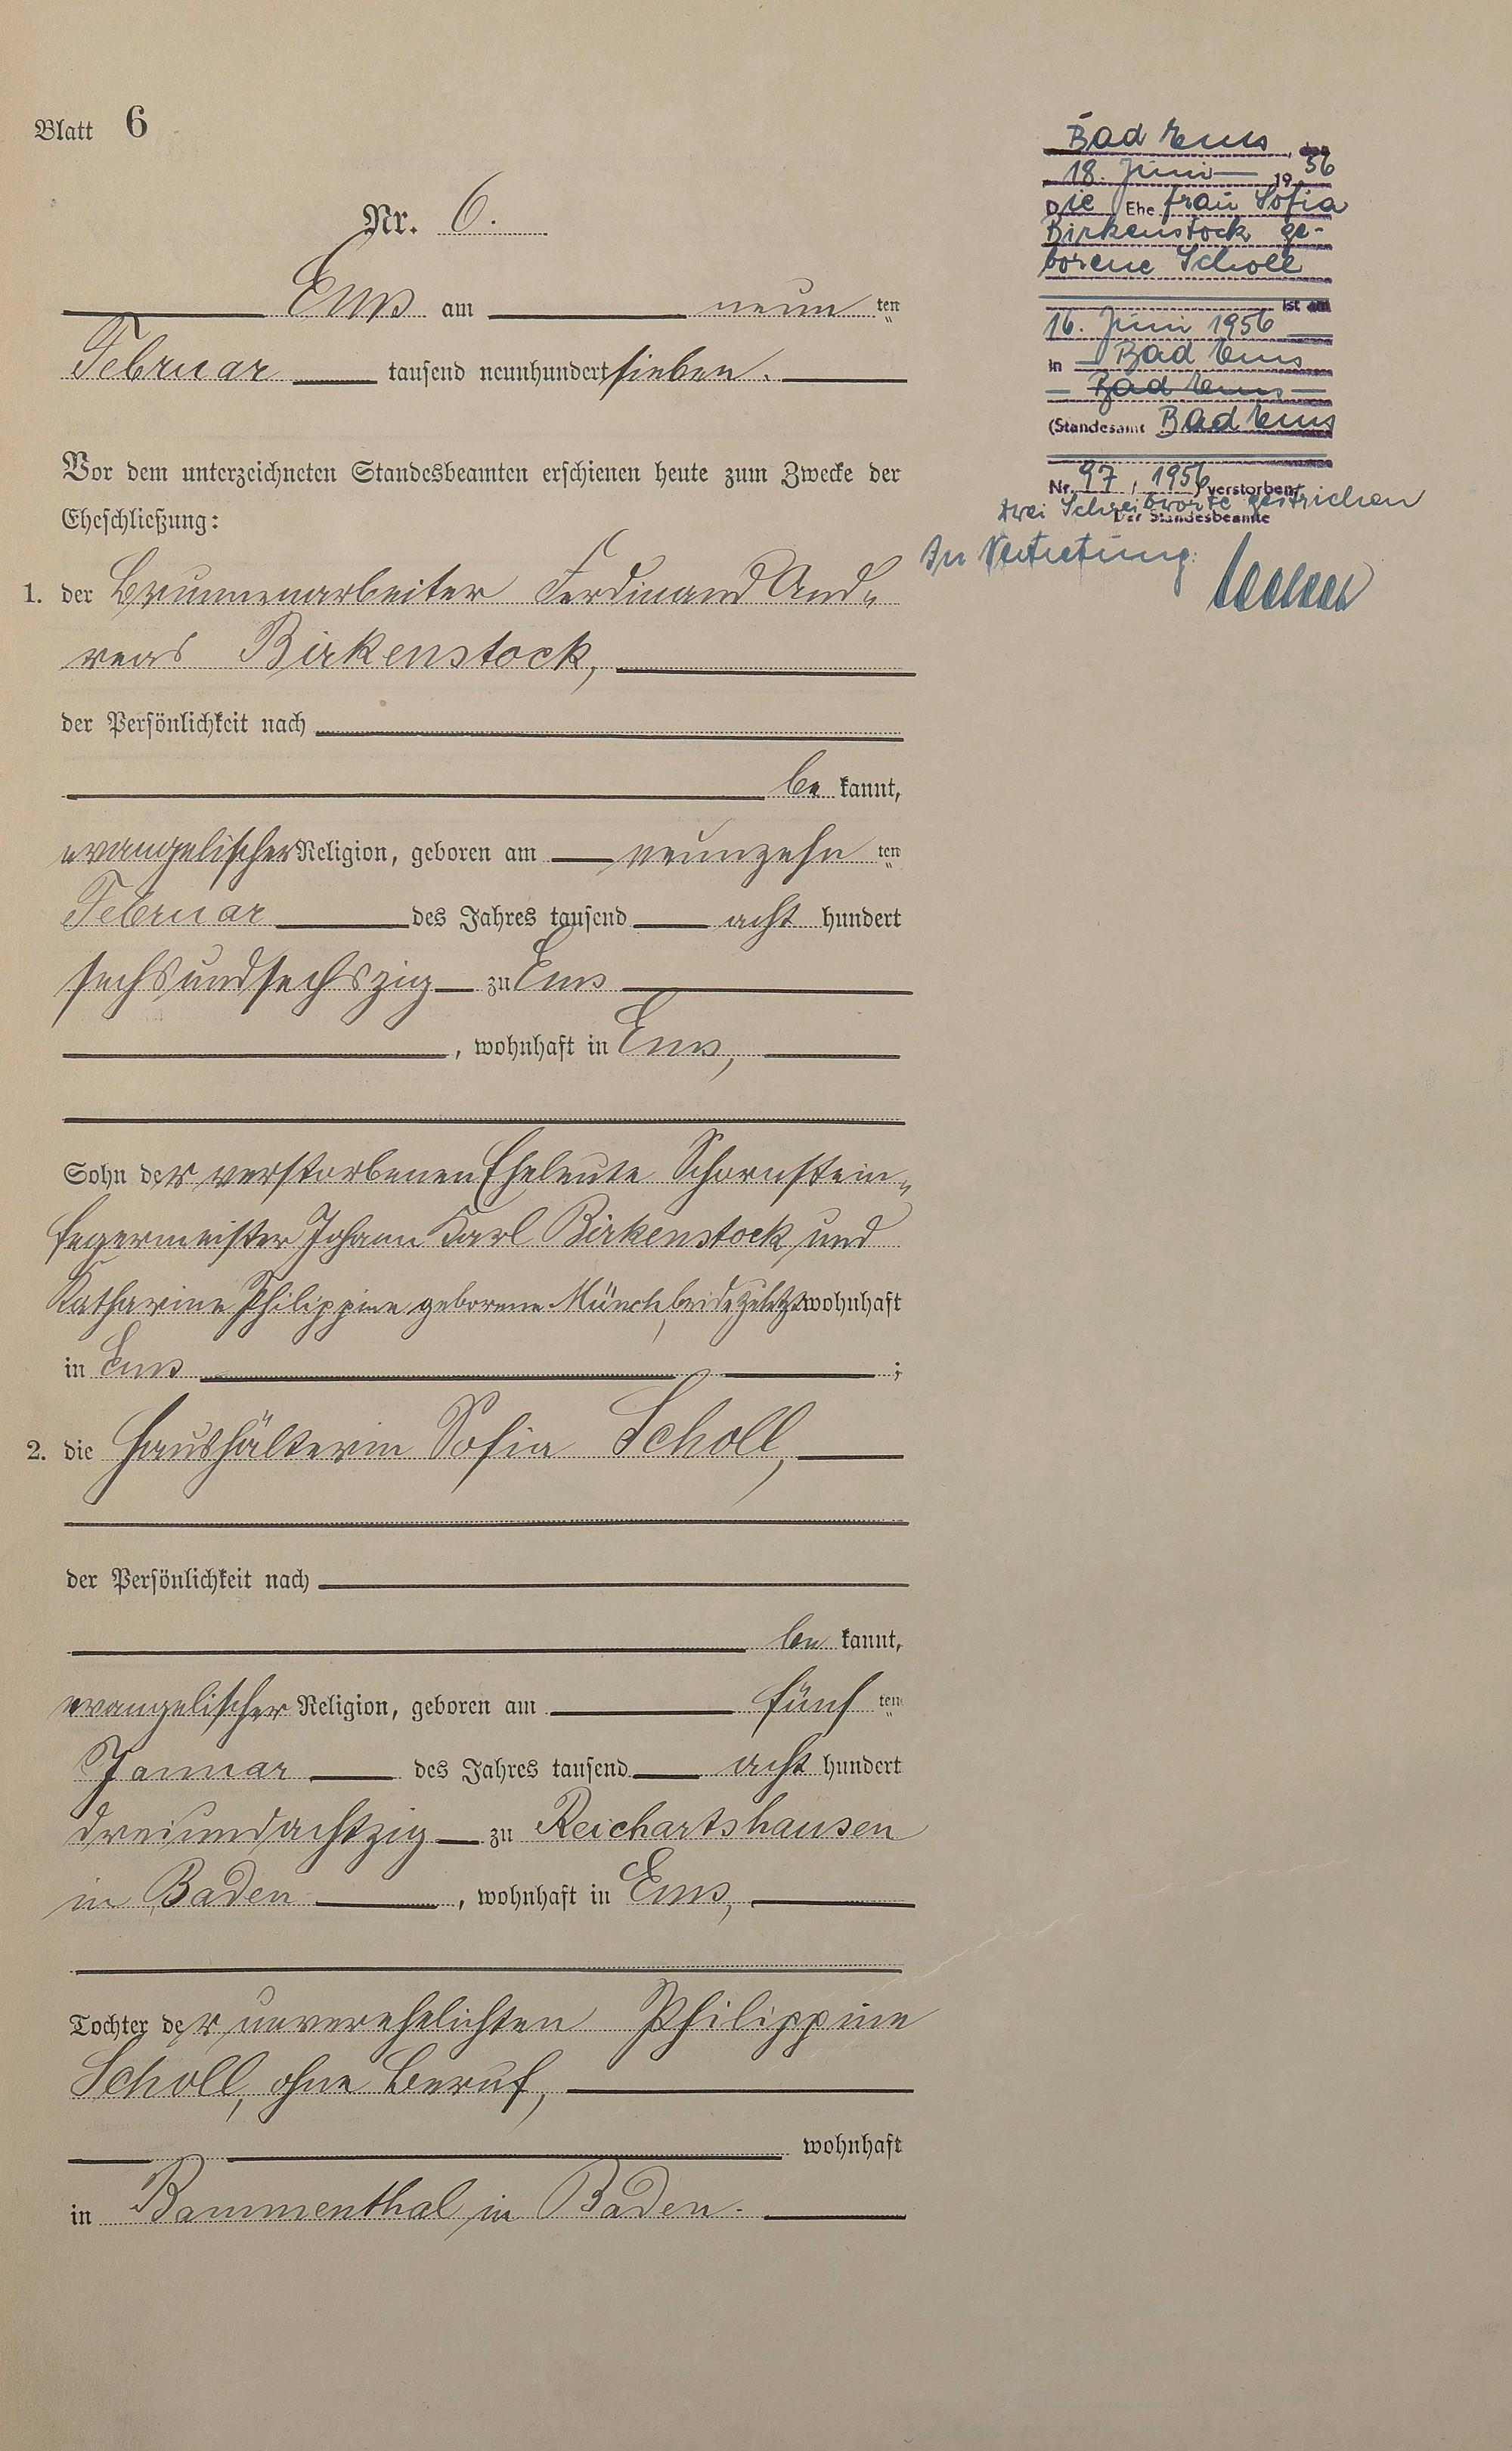 Blatt 6
Nr. 6.
Ems am neun ten
Februar tausend neunhundert sieben.
Vor dem unterzeichneten Standesbeamten erschienen heute zum Zwecke der
Eheschließung:
1. der Brunnenarbeiter Ferdinand And„
reas Birkenstock,
der Persönlichkeit nach
be kannt,
evangelischer Religion, geboren am neunzehn ten
Februar des Jahres tausend acht hundert
sechsundsechszig zu Ems
, wohnhaft in Ems,
Sohn der verstorbenen Eheleute Schornstein„
fegermeister Johann Karl Birkenstock und
Katharine Philippine geborene Münch, beide zuletzt wohnhaft
in Ems ;
2. die Haushälterin Sofia Scholl,
der Persönlichkeit nach
be kannt,
evangelischer Religion, geboren am fünf ten
Januar des Jahres tausend acht hundert
dreiundachtzig zu Reichartshausen
in Baden , wohnhaft in Ems,
Tochter der unverehelichten Philippine
Scholl, ohne Beruf,
wohnhaft
in Bammenthal in Baden.
Bad Ems, den
18. Juni 1956
Die Ehefrau Sofia
Birkenstock ge-
borene Scholl
ist am
16. Juni 1956
in Bad Ems
Bad Ems
(Standesamt Bad Ems
Nr. 97, 1956) verstorben.
zwei Schreibworte gestrichen
Der Standesbeamte
In Vertretung: